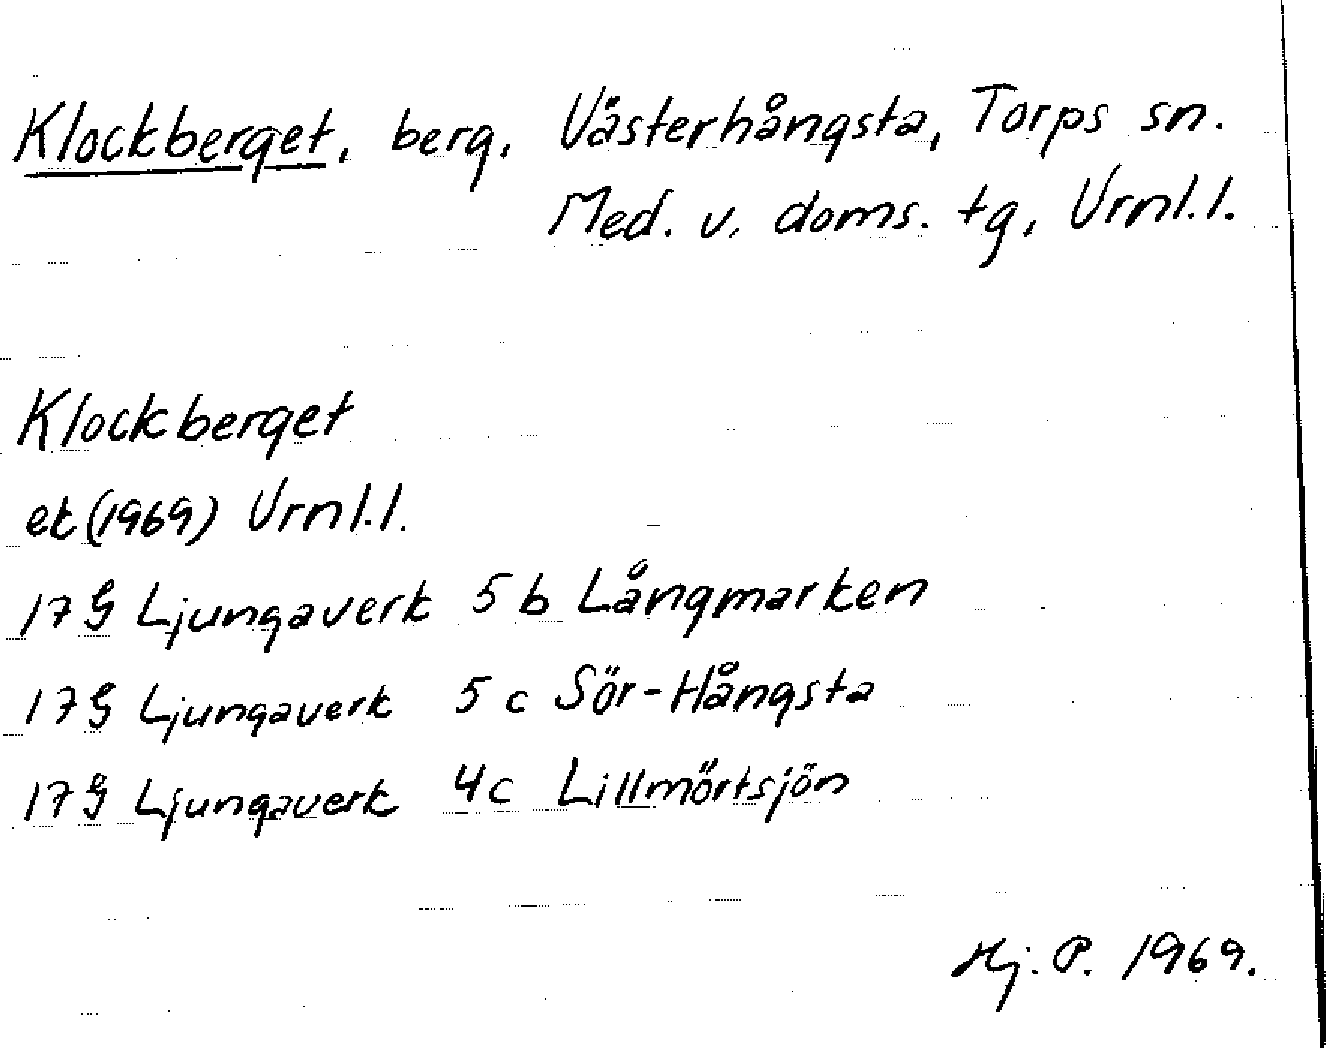 Klockberget, berg, Västerhångsta, Torps sn.
Med. v. doms. tg, Vrnl.l.
Klockberget
ek (1969) Vrnl.l.
17G Ljungaverk 5 b Långmarken
17G Ljungaverk 5 c Sör-Hångsta
17G Ljungaverk 4c Lillmörtsjön
Hj. P. 1969.